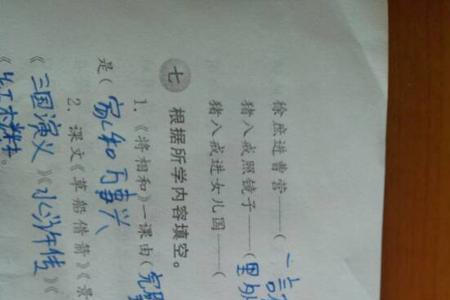 徐庶进曹营——(一言
猪八戒照镜子——(里外
猪八戒进女儿国——(
七 根据所学内容填空。
1.《将相和》一课由(完璧
是(家和万事兴
2. 课文《草船借箭》《景
《三国演义》《水浒传》《